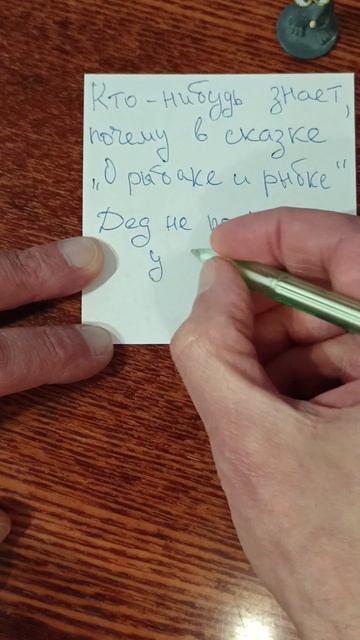 Кто-нибудь знает,
почему в сказке
"О рыбаке и рыбке"
Дед не
у